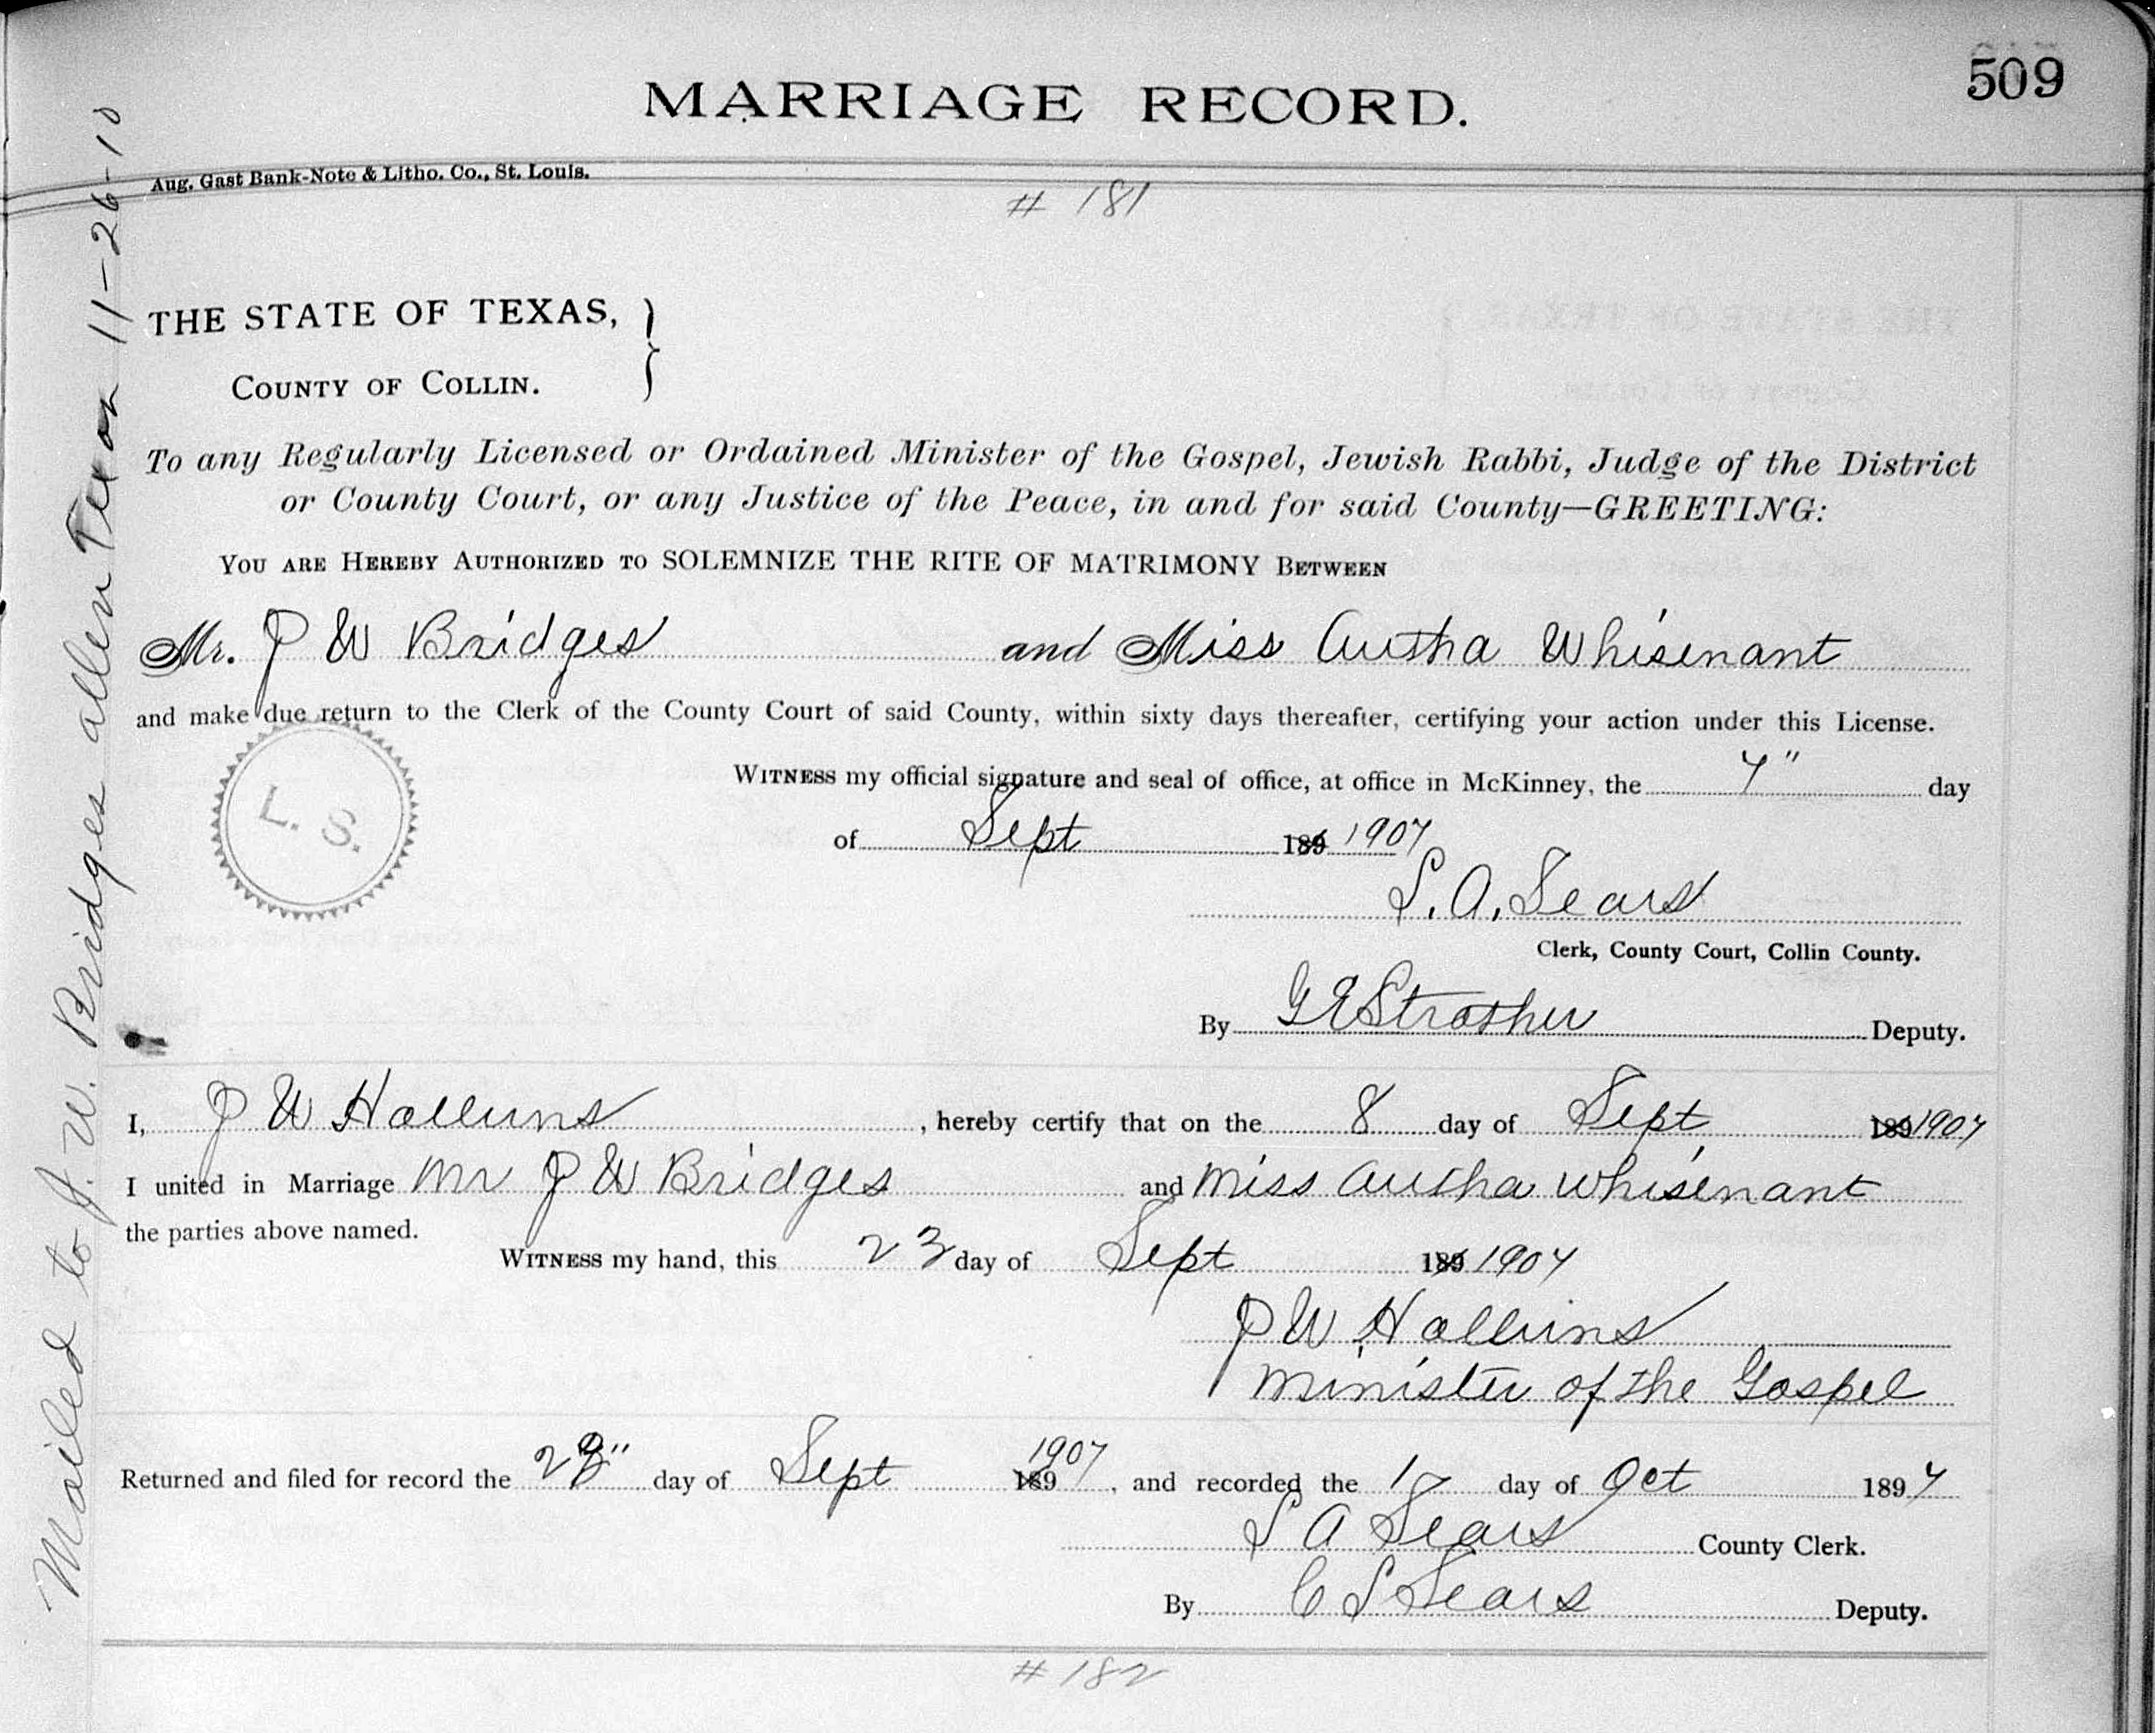 509
MARRIAGE RECORD.
Aug. Gast Bank-Note & Litho. Co., St. Louis.
# 181
THE STATE OF TEXAS,
COUNTY OF COLLIN.
To any Regularly Licensed or Ordained Minister of the Gospel, Jewish Rabbi, Judge of the District
or County Court, or any Justice of the Peace, in and for said County—GREETING:
YOU ARE HEREBY AUTHORIZED TO SOLEMNIZE THE RITE OF MATRIMONY BETWEEN
Mr. J W Bridges and Miss Autha Whisenant
and make due return to the Clerk of the County Court of said County, within sixty days thereafter, certifying your action under this License.
L. S.
WITNESS my official signature and seal of office, at office in McKinney, the 7" day
of Sept 189 1907
S. A. Sears
Clerk, County Court, Collin County.
By G E Strother Deputy.
I, J W Hollums, hereby certify that on the 8 day of Sept 189 1907
I united in Marriage Mr J W Bridges and Miss Autha Whisenant
the parties above named.
WITNESS my hand, this 23 day of Sept 189 1907
J W Hollums
Minister of the Gospel
Returned and filed for record the 23" day of Sept 189 1907, and recorded the 1 day of Oct 1897
S A Sears County Clerk.
By C S Sears Deputy.
# 182
Mailed to J. W. Bridges Allen Texas 11-26-10